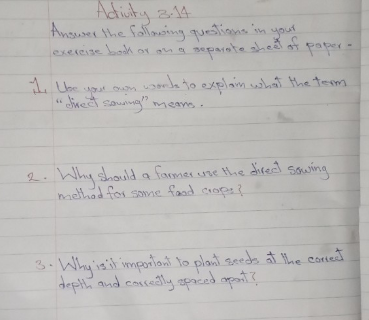 Activity 3.14
Answer the following questions in your
exercise book or on a separate sheet of paper.
1. Use your own words to explain what the term
"direct sowing" means.
2. Why should a farmer use the direct sowing
method for some food crops?
3. Why is it important to plant seeds at the correct
depth and correctly spaced apart?